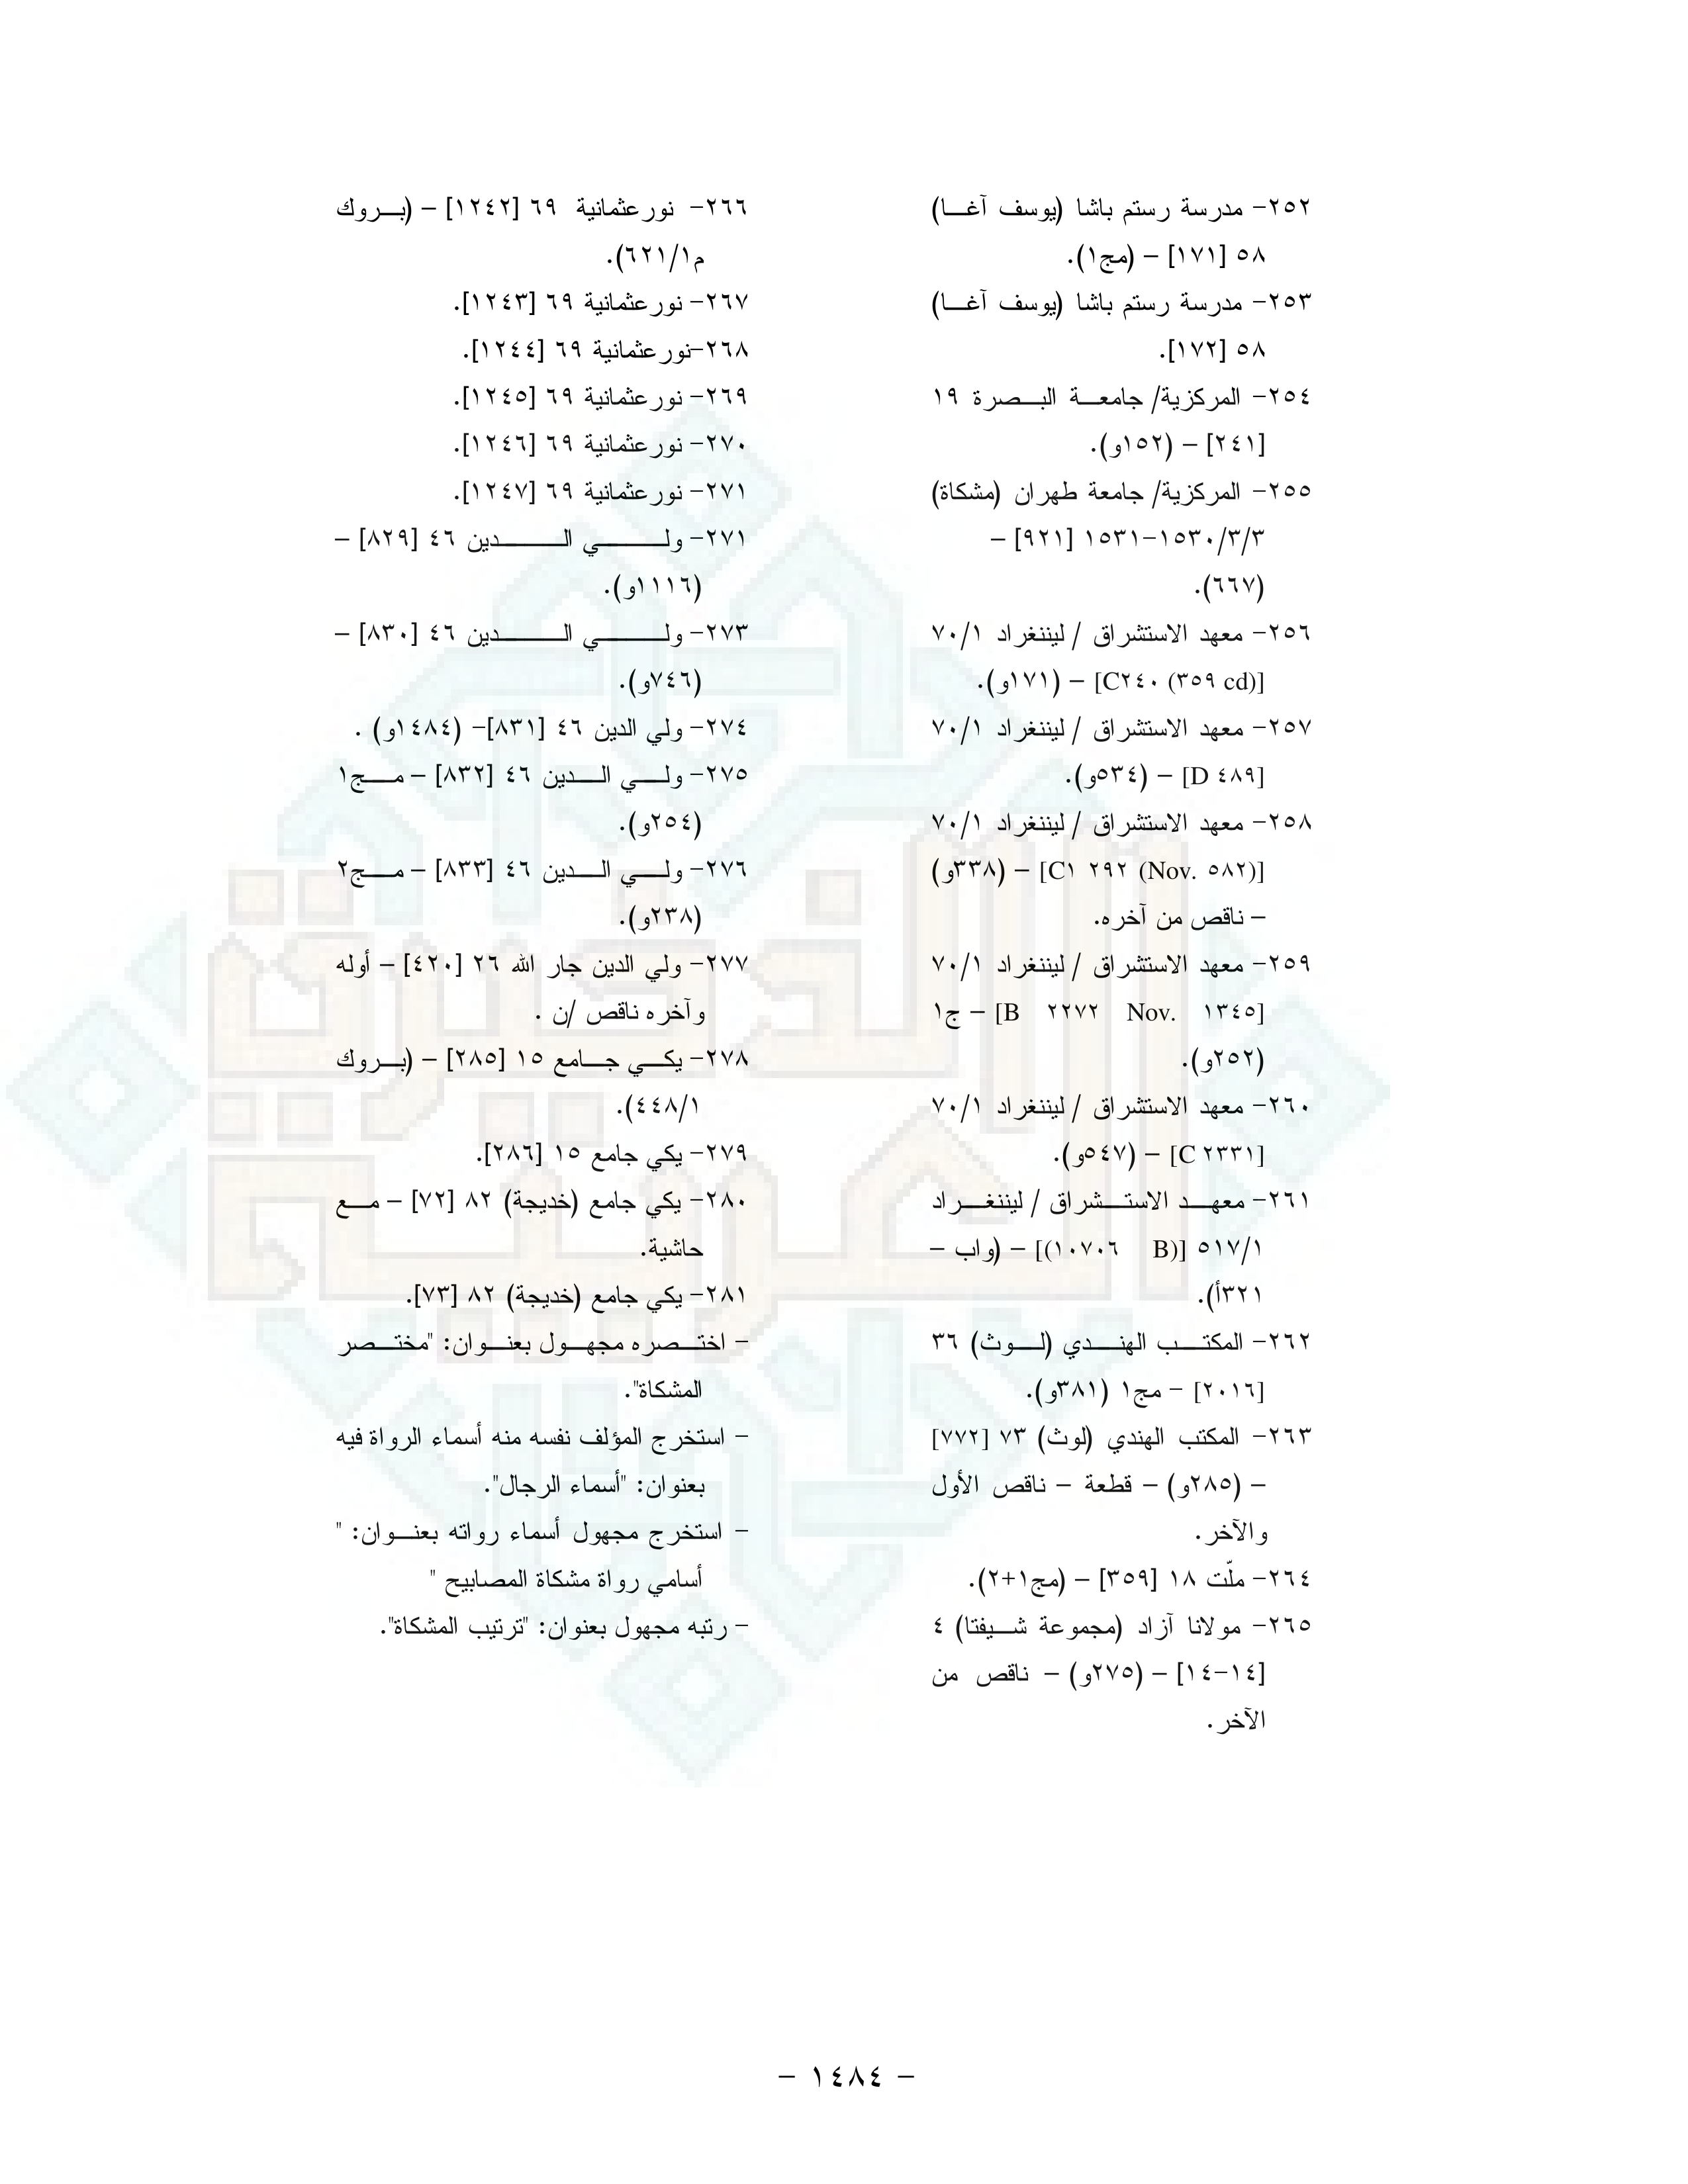 ٢٥٢- مدرسة رستم باشا (يوسف آغـــا)
٥٨ [١٧١] – (مج١).
٢٥٣- مدرسة رستم باشا (يوسف آغـــا)
٥٨ [١٧٢].
٢٥٤- المركزية/ جامعـــة البـــصرة ١٩
[٢٤١] – (١٥٢و).
٢٥٥- المركزية/ جامعة طهران (مشكاة)
١٥٣٠/٣/٣-١٥٣١ [٩٢١] –
(٦٦٧).
٢٥٦- معهد الاستشراق / ليننغراد ٧٠/١
[C٢٤٠ (٣٥٩ cd)] – (١٧١و).
٢٥٧- معهد الاستشراق / ليننغراد ٧٠/١
[D ٤٨٩] – (٥٣٤و).
٢٥٨- معهد الاستشراق / ليننغراد ٧٠/١
[C١ ٢٩٢ (Nov. ٥٨٢)] – (٣٣٨و)
– ناقص من آخره.
٢٥٩- معهد الاستشراق / ليننغراد ٧٠/١
[B ٢٢٧٢ Nov. ١٣٤٥] – ج١
(٢٥٢و).
٢٦٠- معهد الاستشراق / ليننغراد ٧٠/١
[C ٢٣٣١] – (٥٤٧و).
٢٦١- معهـــد الاستـــشراق / ليننغـــراد
٥١٧/١ [(B ١٠٧٠٦)] – (واب –
٣٢١أ).
٢٦٢- المكتـــب الهنـــدي (لـــوث) ٣٦
[٢٠١٦] – مج١ (٣٨١و).
٢٦٣- المكتب الهندي (لوث) ٧٣ [٧٧٢]
– (٢٨٥و) – قطعة – ناقص الأول
والآخر.
٢٦٤- ملّت ١٨ [٣٥٩] – (مج١+٢).
٢٦٥- مولانا آزاد (مجموعة شـــيفتا) ٤
[١٤-١٤] – (٢٧٥و) – ناقص من
الآخر.
٢٦٦- نورعثمانية ٦٩ [١٢٤٢] – (بـــروك
م٦٢١/١).
٢٦٧- نورعثمانية ٦٩ [١٢٤٣].
٢٦٨-نورعثمانية ٦٩ [١٢٤٤].
٢٦٩- نورعثمانية ٦٩ [١٢٤٥].
٢٧٠- نورعثمانية ٦٩ [١٢٤٦].
٢٧١- نورعثمانية ٦٩ [١٢٤٧].
٢٧١- ولـــــي الـــــدين ٤٦ [٨٢٩] –
(١١١٦و).
٢٧٣- ولـــــي الـــــدين ٤٦ [٨٣٠] –
(٧٤٦و).
٢٧٤- ولي الدين ٤٦ [٨٣١]- (١٤٨٤و) .
٢٧٥- ولـــي الـــدين ٤٦ [٨٣٢] – مـــج١
(٢٥٤و).
٢٧٦- ولـــي الـــدين ٤٦ [٨٣٣] – مـــج٢
(٢٣٨و).
٢٧٧- ولي الدين جار الله ٢٦ [٤٢٠] – أوله
وآخره ناقص /ن .
٢٧٨- يكـــي جـــامع ١٥ [٢٨٥] – (بـــروك
٤٤٨/١).
٢٧٩- يكي جامع ١٥ [٢٨٦].
٢٨٠- يكي جامع (خديجة) ٨٢ [٧٢] – مـــع
حاشية.
٢٨١- يكي جامع (خديجة) ٨٢ [٧٣].
– اختـــصره مجهـــول بعنـــوان: "مختـــصر
المشكاة".
– استخرج المؤلف نفسه منه أسماء الرواة فيه
بعنوان: "أسماء الرجال".
– استخرج مجهول أسماء رواته بعنـــوان: "
أسامي رواة مشكاة المصابيح "
– رتبه مجهول بعنوان: "ترتيب المشكاة".
– ١٤٨٤ –